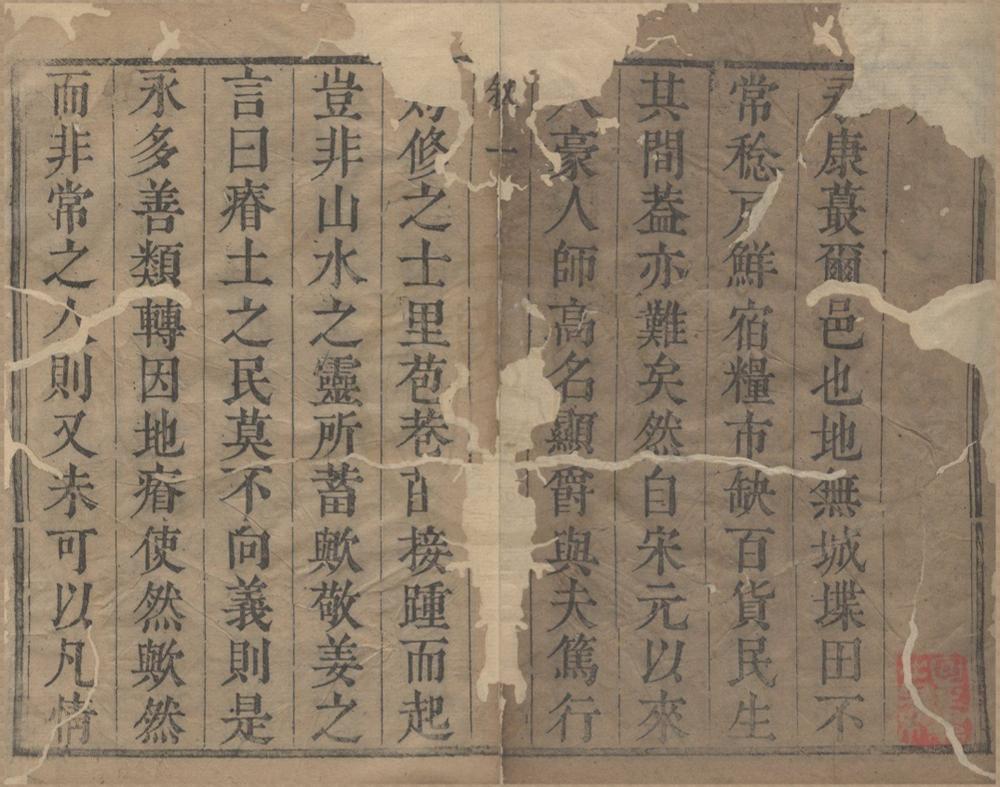 康蕞爾邑也地無城堞田不
常稔鮮宿糧市缺百貨民生
其間葢亦難矣然自宋元以來
豪人師高名顯爵與夫篤行
敘一
修之士里苞巷接踵而起
豈非山水之靈所蓄歟敬姜之
言曰瘠土之民莫不向義則是
永多善類轉因地瘠使然歟然
而非常之人則又未可以凡情